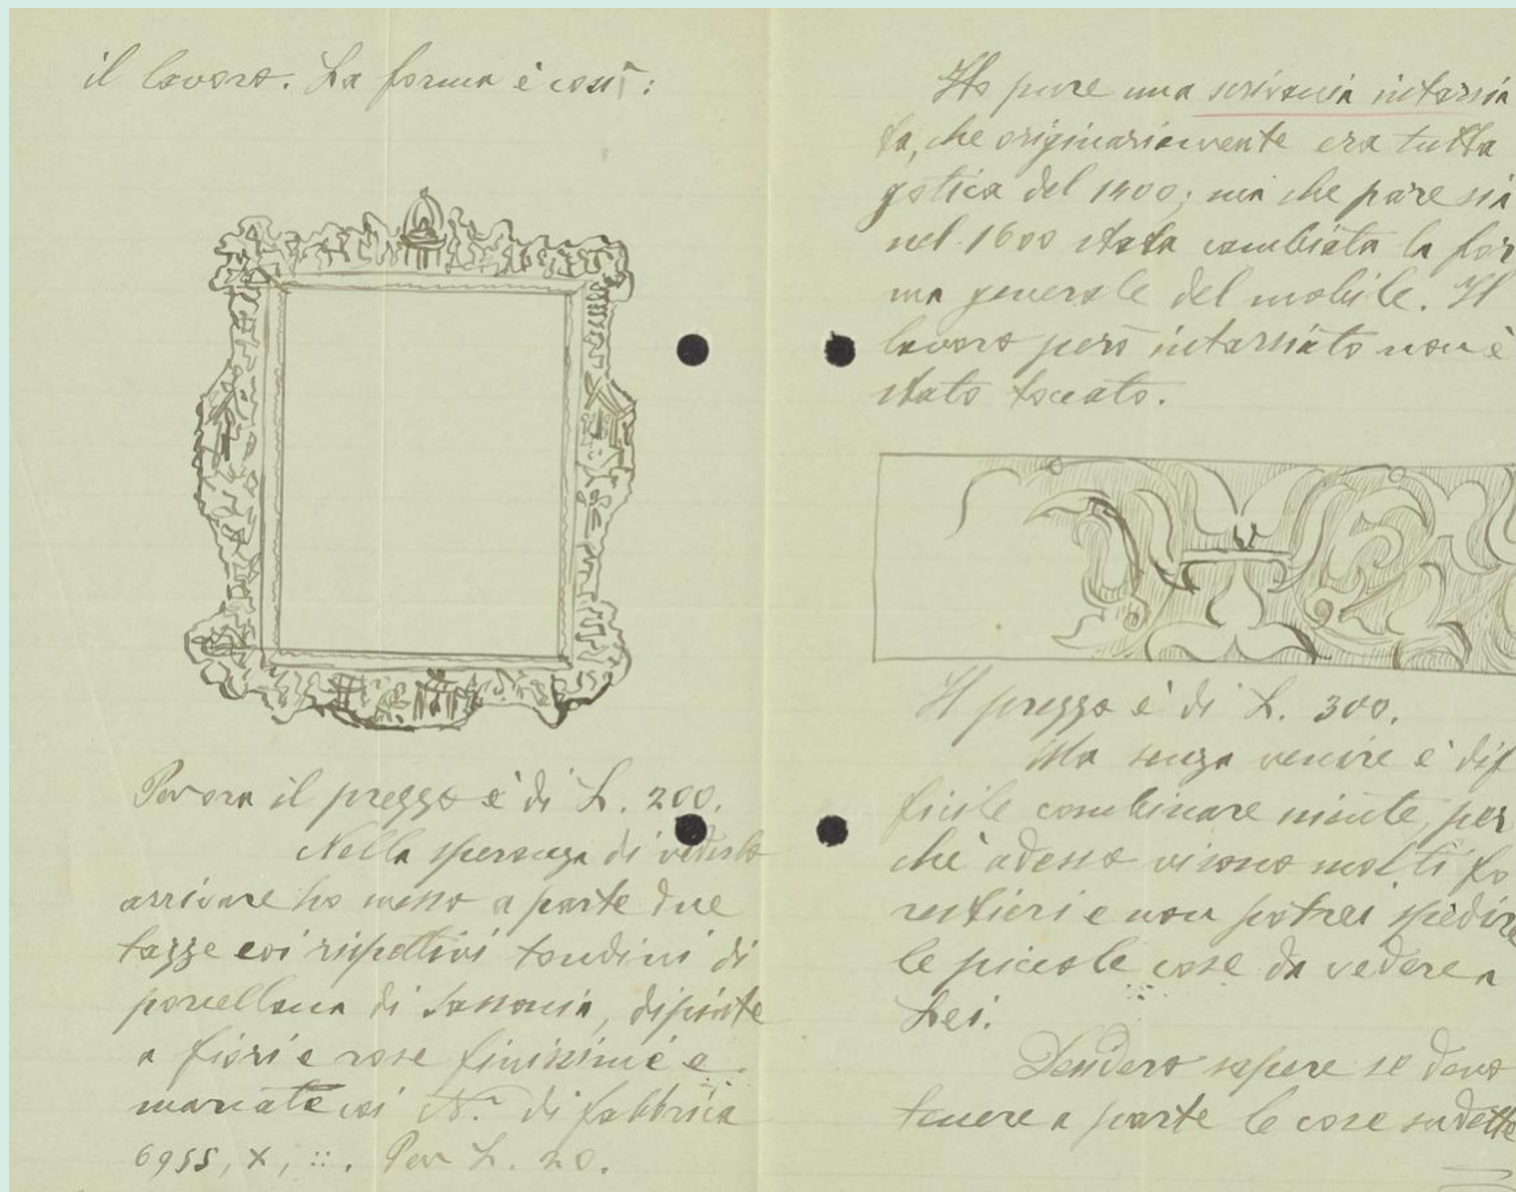 il lavoro. La forma è così:
Per ora il prezzo è di L. 200.
Nella speranza di vederla
arrivare ho messo a parte due
tazze coi rispettivi tondini di
porcellana di Sassonia, dipinte
a fiori e rose finissimi e
marcate coi N.ri di fabbrica
6955, X, ::. Per L. 20.
Ho pure una scrivania intarsia
ta, che originariamente era tutta
gotica del 1400; ma che pare sia
nel 1600 stata cambiata la for
ma generale del mobile. Il
lavoro però intarsiato non è
stato toccato.
Il prezzo è di L. 300.
Ma senza venire è dif
ficile combinare niente, per
chè adesso vi sono molti fo
restieri e non potrei spedire
le piccole cose da vedere a
Lei.
Desidero sapere se devo
tenere a parte le cose sudette